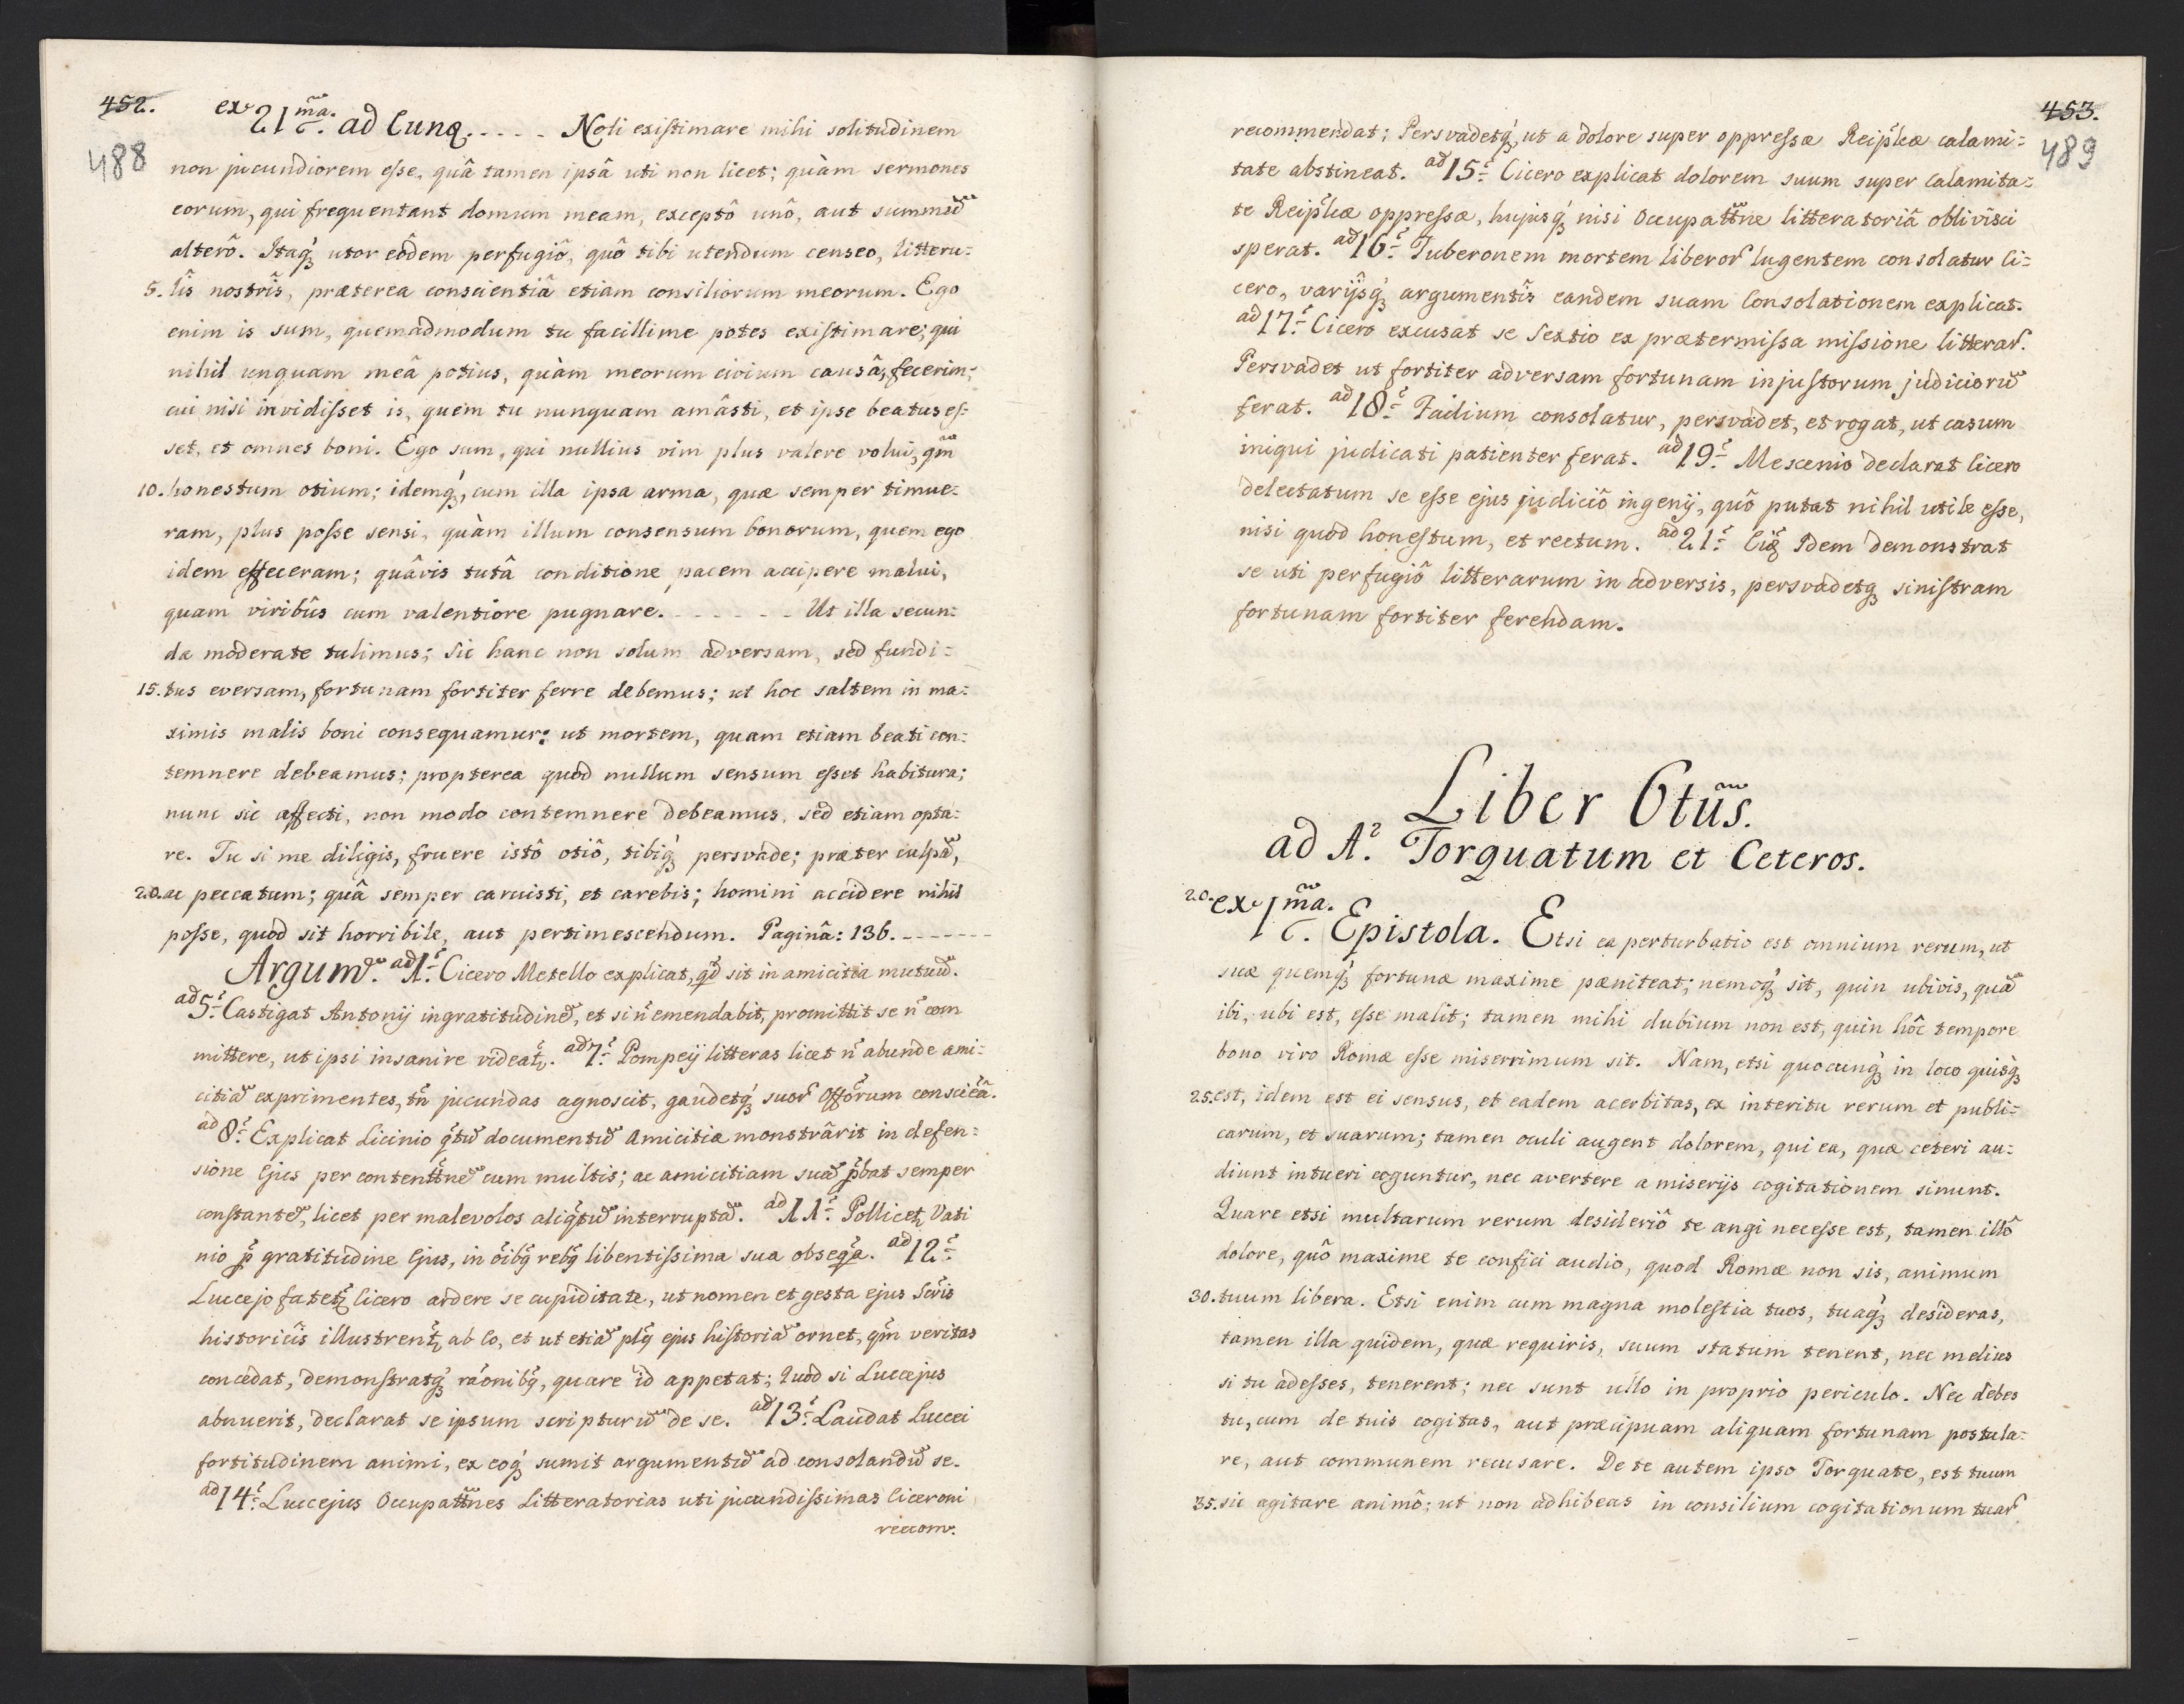 452.
488
ex 21ma. ad Eund. . . . . Noli existimare mihi solitudinem
non jucundiorem esse, quâ tamen ipsâ uti non licet; quàm sermones
eorum, qui frequentant domum meam, exceptô unô, aut summũ
alterô. Itaq́ʒ utor eôdem perfugiô, quô tibi utendum censeo, litteru:
5. lîs nostrîs, præterea conscientiâ etiam consiliorum meorum. Ego
enim is sum, quemadmodum tu facillime potes existimare; qui
nihil unquam meâ potius, quàm meorum civium causâ, fecerim;
cui nisi invidisset is, quem tu nunquam amâsti, et ipse beatus es:
set, et omnes boni. Ego sum, qui nullius vim plus valere volui, qm̃
10. honestum otium; idemq́ʒ, cum illa ipsa arma, quæ semper timue:
ram, plus posse sensi, quàm illum consensum bonorum, quem ego
idem effeceram; quâvis tutâ conditione pacem accipere malui,
quam viribûs cum valentiore pugnare. - - - - - - - Ut illa secun:
da moderate tulimus; sic hanc non solum adversam, sed fundi:
15. tus eversam, fortunam fortiter ferre debemus; ut hoc saltem in ma:
ximis malis boni consequamur: ut mortem, quam etiam beati con:
temnere debeamus; propterea quod nullum sensum esset habitura;
nunc sic affecti, non modo contemnere debeamus, sed etiam opta:
re. Tu si me diligis, fruere istô otiô, tibiq́ʒ persvade; præter culpã,
20. ac peccatum; quâ semper caruisti, et carebis; homini accidere nihil
posse, quod sit horribile, aut pertimescendum. Paginâ: 136. - - - - - - -
Argum̃. ad 1. Cicero Metello explicat, qd̃ sit in amicitia mutuũ.
ad 5. Castigat Antonij ingratitudinẽ, et si ñ emendabit, promittit se ñ com
mittere, ut ipsi insanire videat̃. ad 7. Pompeij litteras licet ñ abunde ami:
citiã exprimentes, tñ jucundas agnoscit, gaudetq́ʒ suor̃ offõrum consciẽâ.
ad 8. Explicat Licinio q̃tũ documentũ Amicitiæ monstrârit in defen:
sione Ejus per contentt̃nẽ cum multis; ac amicitiam suã p̃bat semper
constantẽ, licet per malevolos aliq̃tũ interruptã. ad 11. Pollicet̃ Vati
nio p̃ gratitudine Ejus, in õibq̃ rebq̃ libentissima sua obseq̃a. ad 12.
Luccejo fatet̃ Cicero ardere se cupiditate, ut nomen et gesta ejus Scr̃is
historicîs illustrent̃ ab Eo, et ut etiã plq̃ ejus historiã ornet, qm̃ veritas
concedat, demonstratq́ʒ rãonibq̃, quare id appetat; Quod si Luccejus
abnuerit, declarat se ipsum scripturũ de se. ad 13. Laudat Luccei
fortitudinem animi, ex eoq́ʒ sumit argumentũ ad consolandũ se.
ad 14. Luccejus Occupatt̃nes Litteratorias uti jucundissimas Ciceroni
recom.
453.
489
recommendat; Persvadetq́ʒ, ut a dolore super oppressæ Reip̃licæ calami:
tate abstineat. ad 15. Cicero explicat dolorem suum super Calamita:
te Reip̃licæ oppressæ, hujusq́ʒ nisi Occupatt̃ne litteratoriâ oblivîsci
sperat. ad 16. Tuberonem mortem liberor̃ lugentem consolatur Ci:
cero, varijsq́ʒ argumentîs eandem suam Consolationem explicat.
ad 17. Cicero excusat se Sextio ex prætermissa missione litterar̃.
Persvadet ut fortiter adversam fortunam injustorum judiciorũ
ferat. ad 18. Fadium consolatur, persvadet, et rogat, ut casum
iniqui judicati patienter ferat. ad 19. Mescenio declarat Cicero
delectatum se esse ejus judiciô ingenij, quô putat nihil utile esse,
nisi quod honestum, et rectum. ad 21. Idem demonstrat
se uti perfugiô litterarum in adversis, persvadetq́ʒ sinistram
fortunam fortiter ferendam.
Liber 6tũs.
ad A. Torquatum et Ceteros.
20. ex 1ma. Epistola. Etsi ea perturbatio est omnium rerum, ut
suæ quemq́ʒ fortunæ maxime pæniteat; nemoq́ʒ sit, quin ubivis, quã
ibi, ubi est, esse malit; tamen mihi dubium non est, quin hôc tempore
bono viro Romæ esse miserrimum sit. Nam, etsi quocunq́ʒ in loco quisq́ʒ
25. est, idem est ei sensus, et eadem acerbitas, ex interitu rerum et publi:
carum, et suarum; tamen oculi augent dolorem, qui ea, quæ ceteri au:
diunt intueri coguntur, nec avertere a miserijs cogitationem sinunt.
Quare etsi multarum rerum desideriô te angi necesse est, tamen illô
dolore, quô maxime te confici audio, quod Romæ non sis, animum
30. tuum libera. Etsi enim cum magna molestia tuos, tuaq́ʒ desideras,
tamen illa quidem, quæ requiris, suum statum tenent, nec melius
si tu adesses, tenerent; nec sunt ullo in proprio periculo. Nec debes
tu, cum de tuis cogitas, aut præcipuam aliquam fortunam postula:
re, aut communem recusare. De te autem ipso Torquate, est tuum
35. sic agitare animô; ut non adhibeas in consilium cogitationum tuar̃